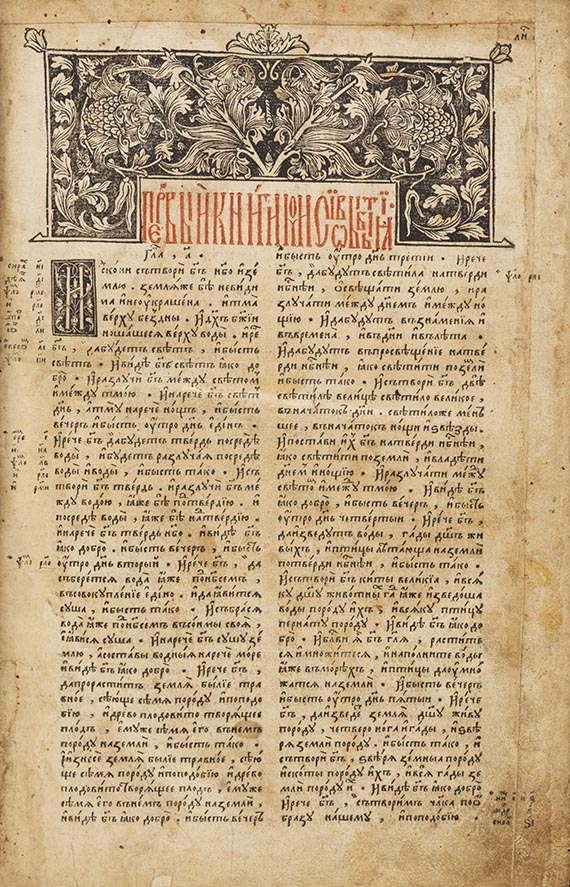 глⷡа, а҃.
Искони сътвори бг҃ъ нб҃о и зе
млю. земля же бѣ невиди
ма и неоукрашена. и тма
верху бездны. и дх҃ъ бж҃іи
ношашеся верху воды. и рече
бг҃ъ, да будетъ свѣтъ, и бысть
свѣтъ. и видѣ бг҃ъ свѣтъ яко до
бро. и разлучи бг҃ъ между свѣтом
и между тмою. и нарече свѣтъ
дн҃ь, а тму нарече нощъ, и бысть
вечеръ и бысть оутро дн҃ь единъ.
и рече бг҃ъ да будетъ твердь посредѣ
воды, и будетъ разлучая посредѣ
воды и воды, и бысть тако. и съ
твори бг҃ъ твердь. и разлучи бг҃ъ ме
жду водою, яже бѣ под твердію. и
посредѣ воды, яже над твердію.
и нарече бг҃ъ твердь нб҃о. и видѣ бг҃ъ
яко добро. и бысть вечеръ, и бысть
оутро дн҃ь вторыи. и рече бг҃ъ, да
съберется вода яже под нб҃семъ,
въ совокупленіе едино. и да явится
суша, и бысть тако. и събрася
вода яже под нб҃семъ въ сонмы своя,
и явися суша. и нарече бг҃ъ сушу зе
млю, а составы водныя нарече море
и видѣ бг҃ъ яко добро. и рече бг҃ъ,
да прорастить земля былие тра
вное, сѣюще сѣмя по роду и по подо
бію, и древо плодовито творящее
плодъ, ему же сѣмя его въ немъ
по роду на земли, и бысть тако.
и изнесе земля былие травное, сѣю
ще сѣмя по роду и по подобію и древо
плодовито творящее плодъ, ему же
сѣмя его въ немъ по роду на земли,
и видѣ бг҃ъ яко добро. и бысть вечеръ
и бысть оутро дн҃ь третии. и рече
бг҃ъ, да будутъ свѣтила на тверди
нб҃снѣи, освѣщати землю, и ра
злучати между днем и между но
щію. и да будутъ въ знаменія и
въ времена, и въ дни и въ лѣта.
и да будутъ въ просвѣщеніе на тве
рди нб҃снѣи, яко свѣтити по земли
и бысть тако. и сътвори бг҃ъ двѣ
свѣтилѣ велицѣ свѣтило великое,
въ началокъ дн҃и. свѣтило же мен
шее, въ началокъ нощи и звѣзды.
и постави ихъ бг҃ъ на тверди нб҃снѣи,
яко свѣтити по земли, и владѣти
днем и нощію. и разлучати между
свѣтом и между тмою. и видѣ бг҃ъ
яко добро, и бысть вечеръ, и бысть
оутро дн҃ь четвертыи. и рече бг҃ъ,
да изведутъ воды, гады дш҃ъ жи
выхъ, и птицы лѣтающа на земли
по тверди нб҃снѣи, и бысть тако.
и сътвори бг҃ъ киты великія, и вся
ку дш҃у животны гад яже изведоша
воды по роду ихъ, и всяку птицу
пернату по роду. и видѣ бг҃ъ яко до
бро. и блⷭви я бг҃ъ гл҃я, раститѣ
ся и множитеся, и наполните воды
яже въ морѣхъ, и птицы да оумно
жатся на земли. и бысть вечеръ
и бысть оутро дн҃ь пятыи. и рече
бг҃ъ, да изведе земля дш҃у живу
по роду, четвероногая и гады, и ѕвѣ
ря земли по роду. и бысть тако, и
сътвори бг҃ъ, ѕвѣря земныя по роду
и скоты по роду ихъ, и вся гады зе
мли по роду и. и видѣ бг҃ъ яко добро
и рече бг҃ъ, сътворимъ чл҃ка по о
бразу нашему, и по подобію.